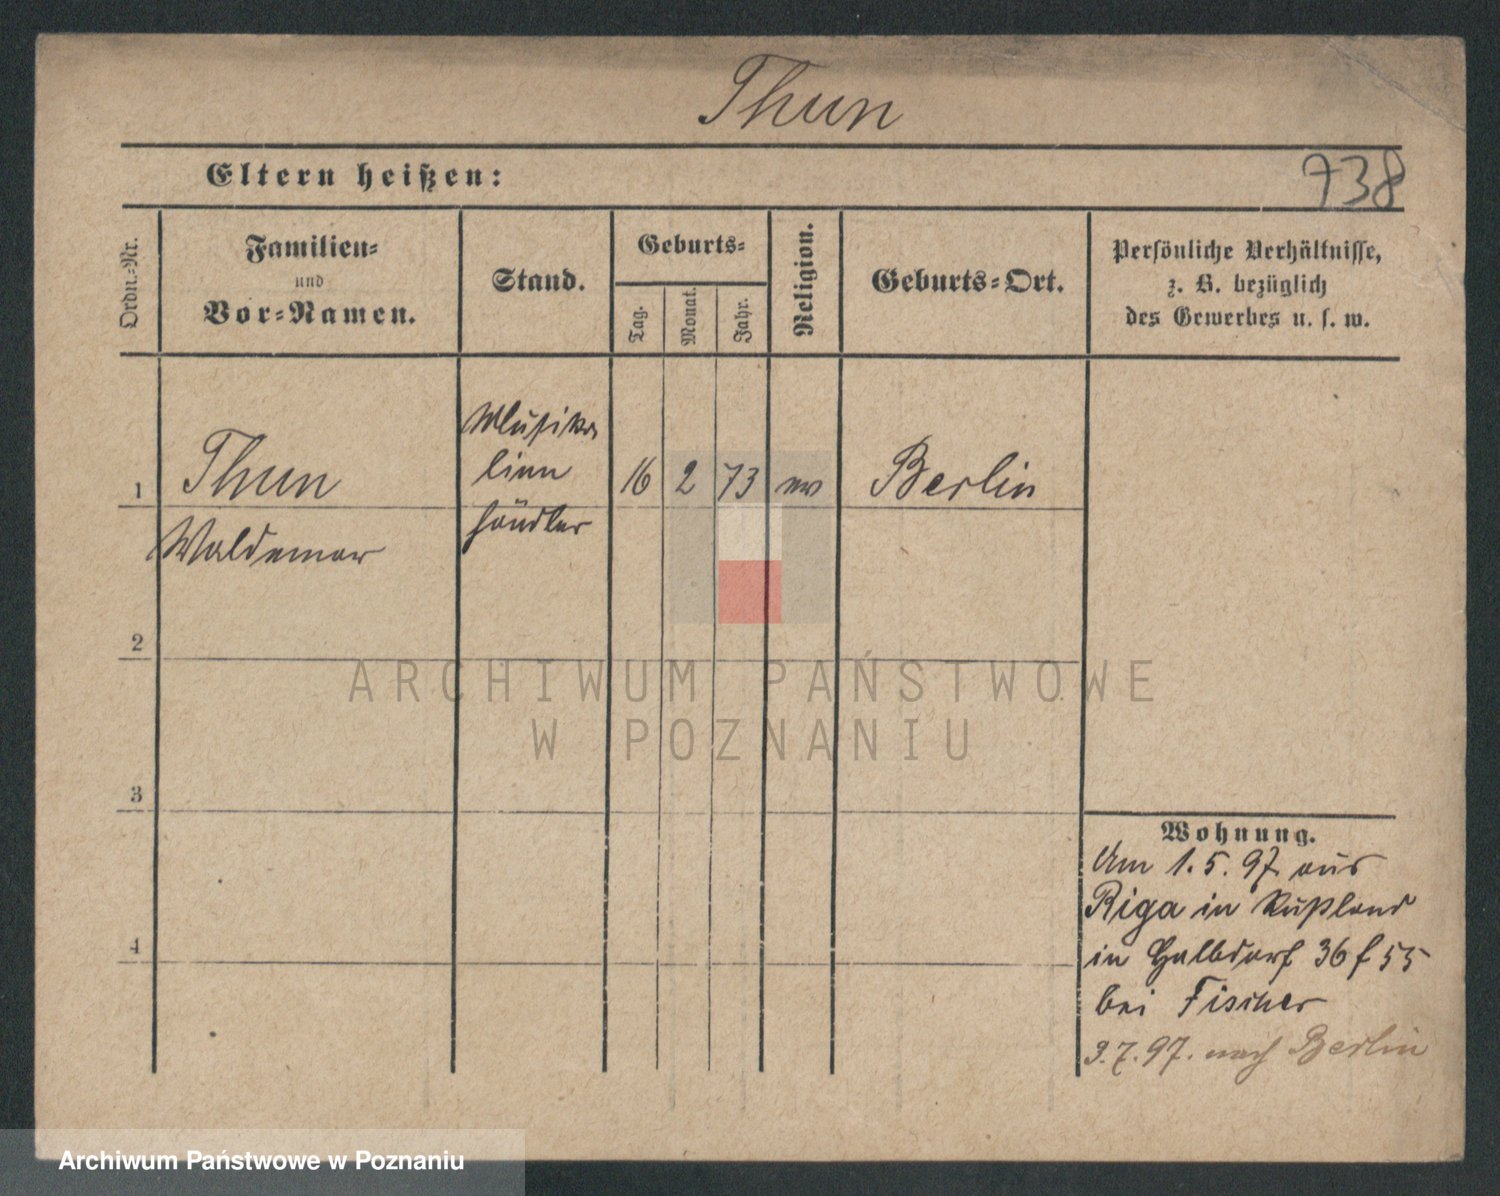 Thun
Eltern heißen:
738
Ordn.-Nr.
Familien-
und
Vor-Namen.
Stand.
Geburts-
Tag.
Monat.
Jahr.
Religion.
Geburts-Ort.
Persönliche Verhältnisse,
z. B. bezüglich
des Gewerbes u. s. w.
1
Thun
Waldemar
Musika
lien
händler
16
2
73
ev
Berlin
2
3
4
Wohnung.
Am 1.5.97 aus
Riga in Rußland
in Halbdorf 36 f 55
bei Fischer
9.7.97. nach Berlin
ARCHIWUM PAŃSTWOWE
W POZNANIU
Archiwum Państwowe w Poznaniu